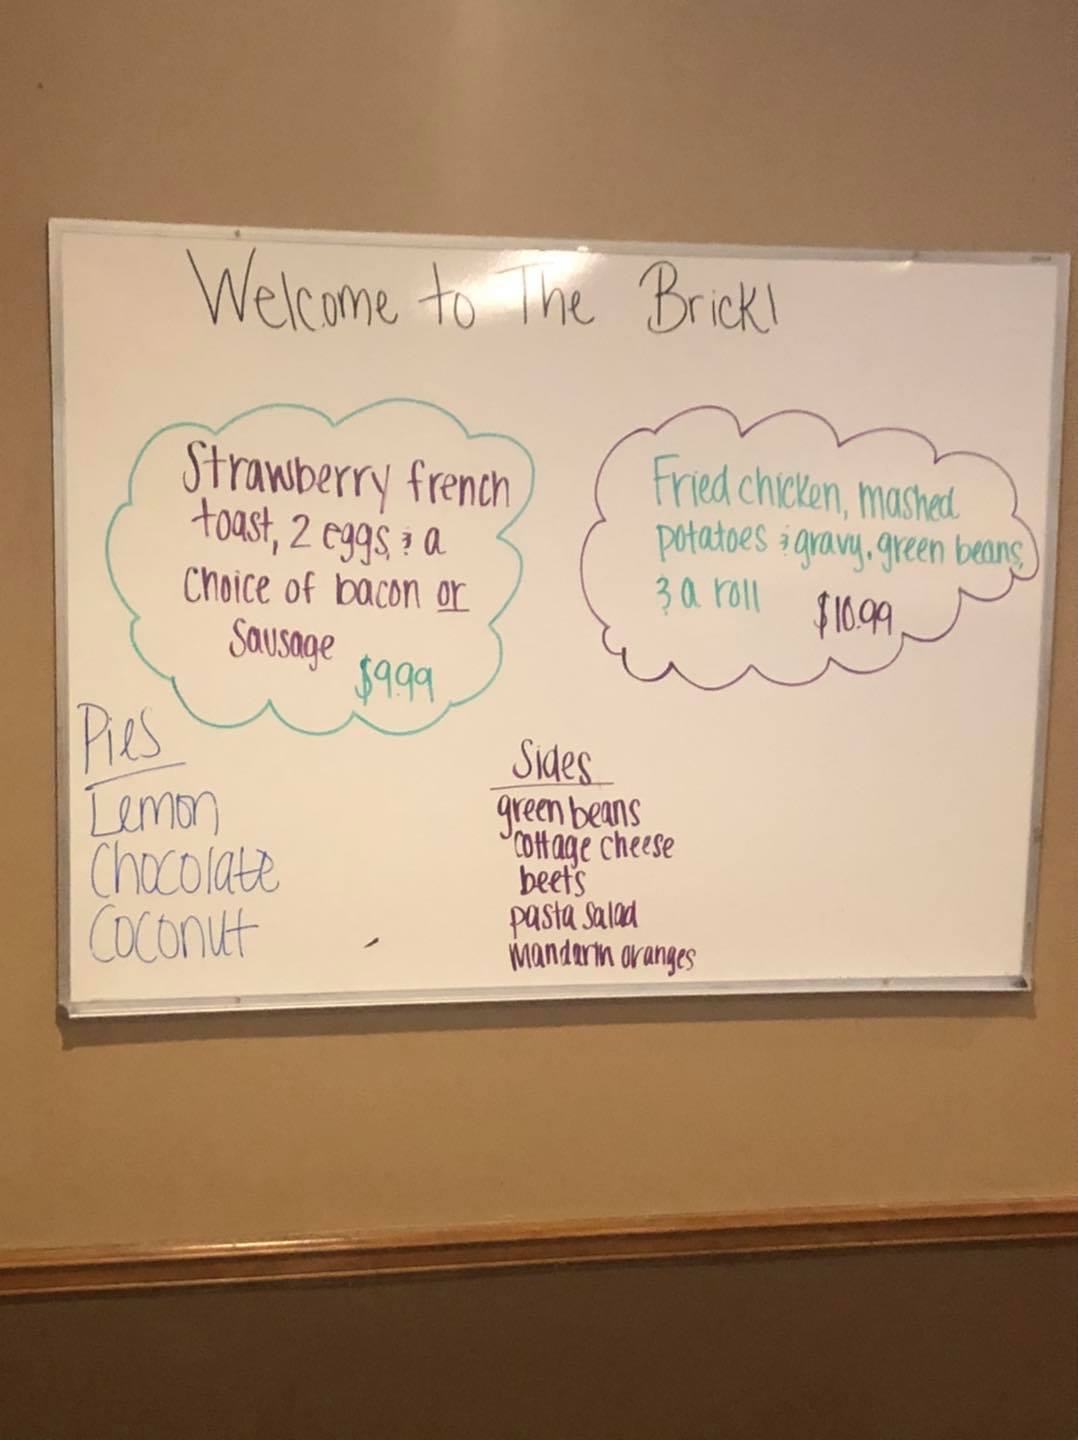 Welcome to The Brick!
Strawberry french
toast, 2 eggs, & a
Choice of bacon or
Sausage
$9.99
Fried chicken, mashed
potatoes & gravy, green beans,
& a roll
$10.99
Pies
Lemon
Chocolate
Coconut
Sides
green beans
cottage cheese
beets
pasta salad
mandarin oranges